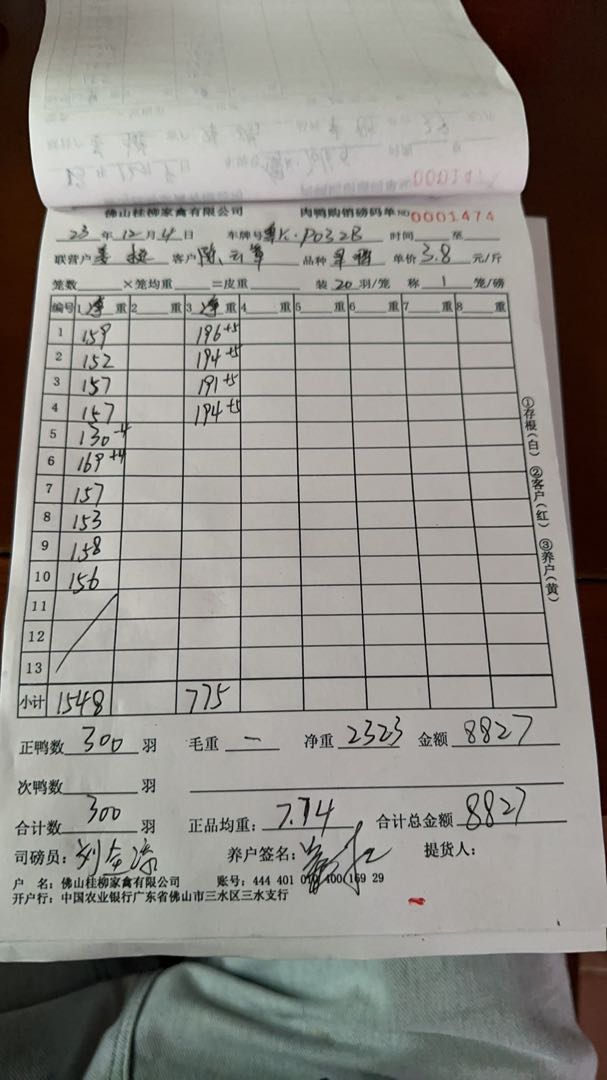 佛山桂柳家禽有限公司 肉鸭购销磅码单 NO 0001474
23 年 12 月 4 日 车牌号 粤K·P032B 时间 至
联营户 客户 陈云 品种 单价 3.8 元/斤
笼数 ×笼均重 =皮重 装 20 羽/笼 称 1 笼/磅
编号 1 净 重 2 重 3 净 重 4 重 5 重 6 重 7 重 8 重
1 159 196+5
2 152 194+5
3 157 191+5
4 157 194+5
5 130-4
6 169+4
7 157
8 153
9 158
10 156
11
12
13
小计 1548 775
正鸭数 300 羽 毛重 一 净重 2323 金额 8827
次鸭数 羽
合计数 300 羽 正品均重: 7.74 合计总金额 8827
司磅员: 刘 养户签名: 提货人:
户 名: 佛山桂柳家禽有限公司 账号: 444 401 010 400 169 29
开户行: 中国农业银行广东省佛山市三水区三水支行
①存根(白) ②客户(红) ③养户(黄)